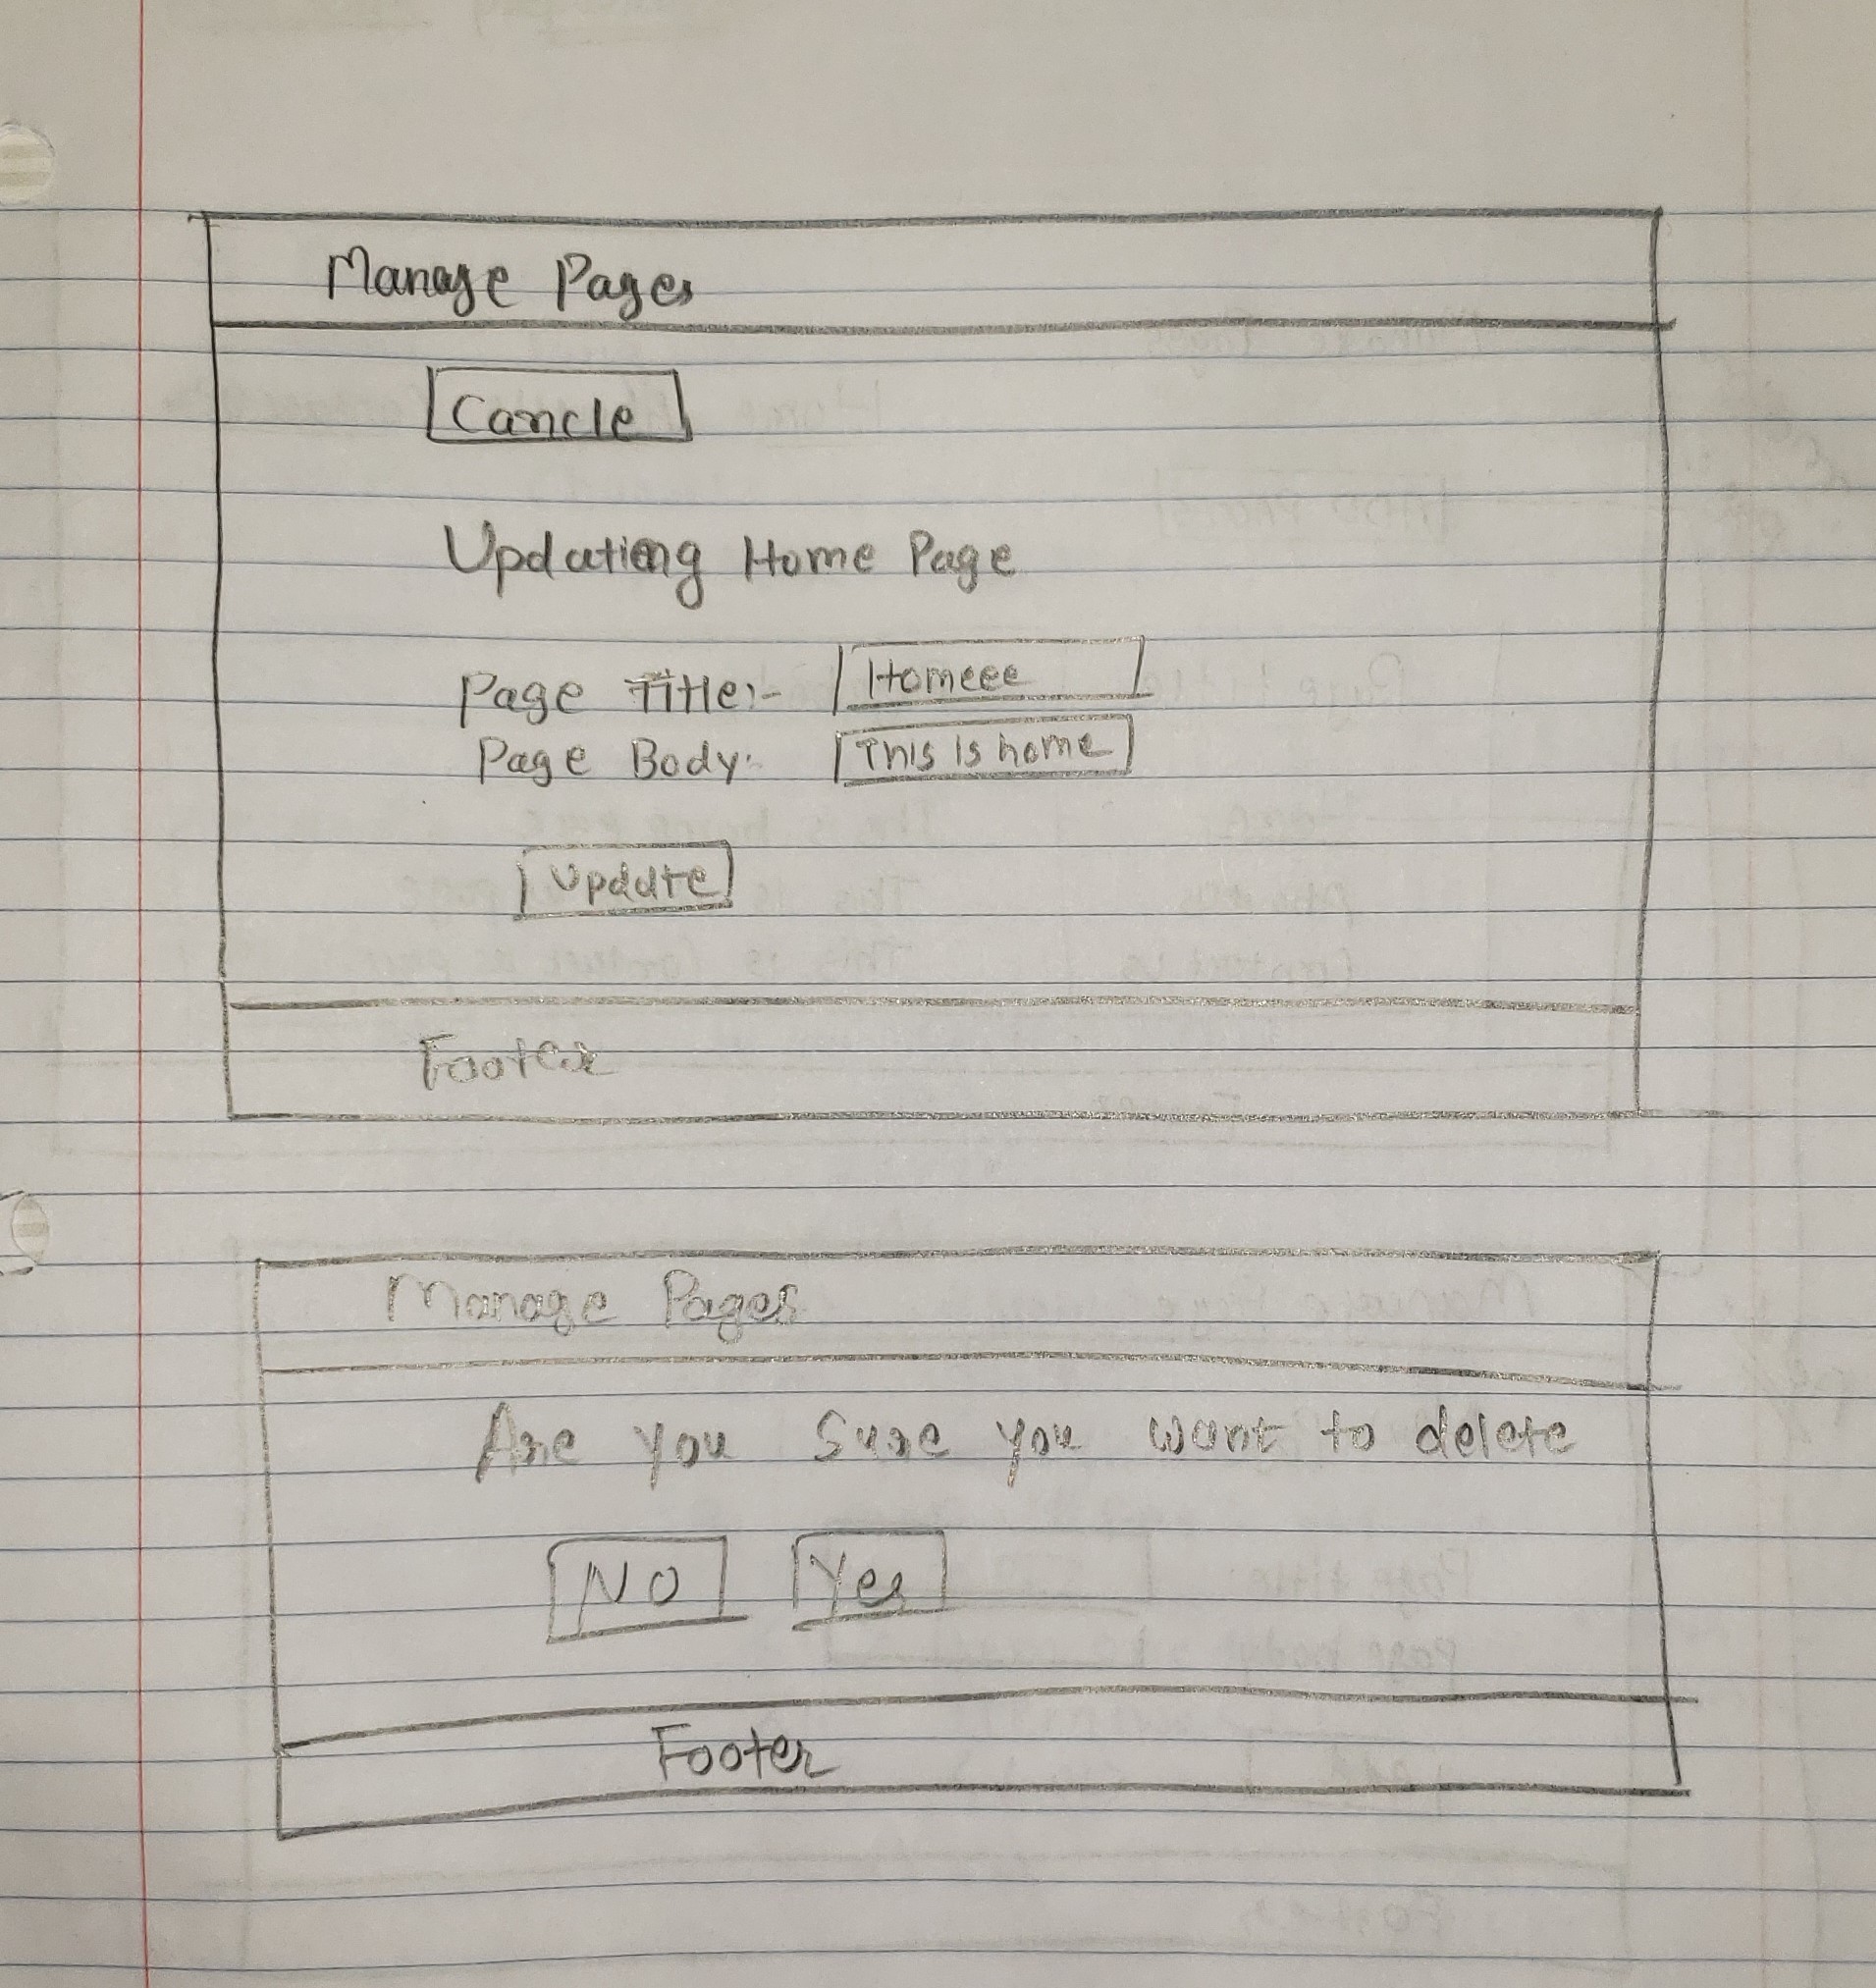 Manage Pages
Cancle
Updating Home Page
Page Title:- Homeee
Page Body: This is home
Update
Footer
Manage Pages
Are you sure you want to delete
NO Yes
Footer